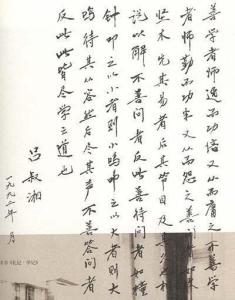 善学者师逸而功倍又从而庸之不善学
者师勤而功半又从而怨之善问者如攻
坚木先其易者后其节目及其久也相
说以解不善问者反此善待问者如撞
钟叩之以小者则小鸣叩之以大者则大
鸣待其从容然后尽其声不善答问者
反此此皆进学之道也
吕叔湘
一九九二年 月
《礼记·学记》